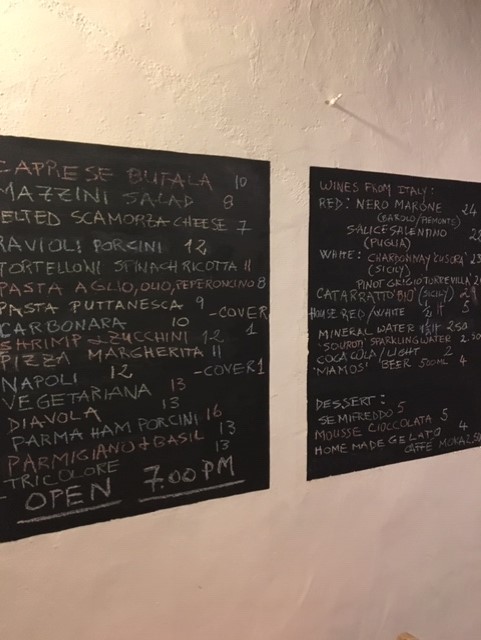 CAPRESE BUFALA 10
MAZZINI SALAD 8
ELTED SCAMORZA CHEESE 7
RAVIOLI PORCINI 12
TORTELLONI SPINACH RICOTTA 11
PASTA AGLIO, OLIO, PEPERONCINO 8
PASTA PUTTANESCA 9
-COVER 1
CARBONARA 10
SHRIMP & ZUCCHINI 12
PIZZA MARGHERITA 11
-COVER 1
NAPOLI 12
VEGETARIANA 13
DIAVOLA 13
PARMA HAM PORCINI 16
PARMIGIANO + BASIL 13
TRICOLORE 13
OPEN 7.00 PM
WINES FROM ITALY:
RED: NERO MARONE 24
(BAROLO/PIEMONTE)
SALICE SALENTINO
(PUGLIA)
WHITE: CHARDONNAY
(SICILY)
PINOT GRIGIO
CATARRATTO BIO (SICILY)
HOUSE RED/WHITE ½ lt 5
MINERAL WATER 2.50
SPARKLING WATER 2.50
COCA COLA/LIGHT 2
'MAMOS' BEER 500ML 4
DESSERT:
SEMIFREDDO 5
MOUSSE CIOCCOLATA 5
HOME MADE GELATO 4
CAFFE MOKA